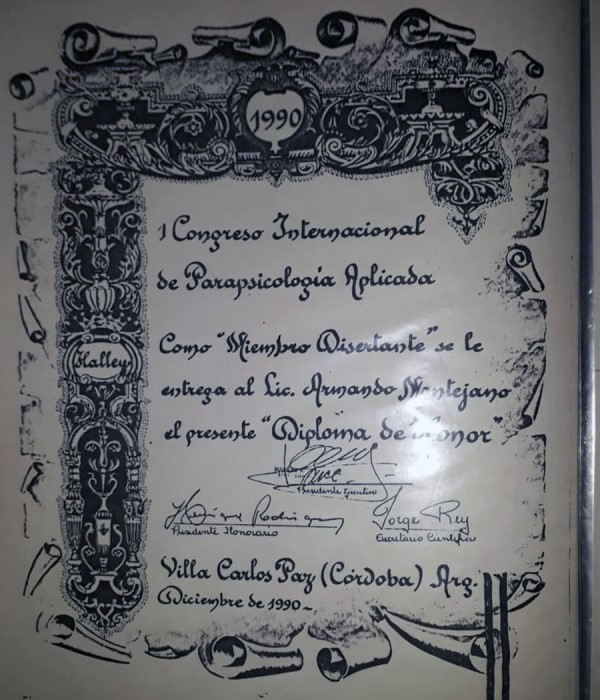 1990
I Congreso Internacional
de Parapsicología Aplicada
Halley
Como "Miembro Disertante" se le
entrega al Lic. Armando Montejano
el presente "Diploma de Honor"
Presidente Ejecutivo
Enrique Rodriguez
Jorge Rey
Presidente Honorario
Secretario Científico
Villa Carlos Paz (Córdoba) Arg.
Diciembre de 1990-